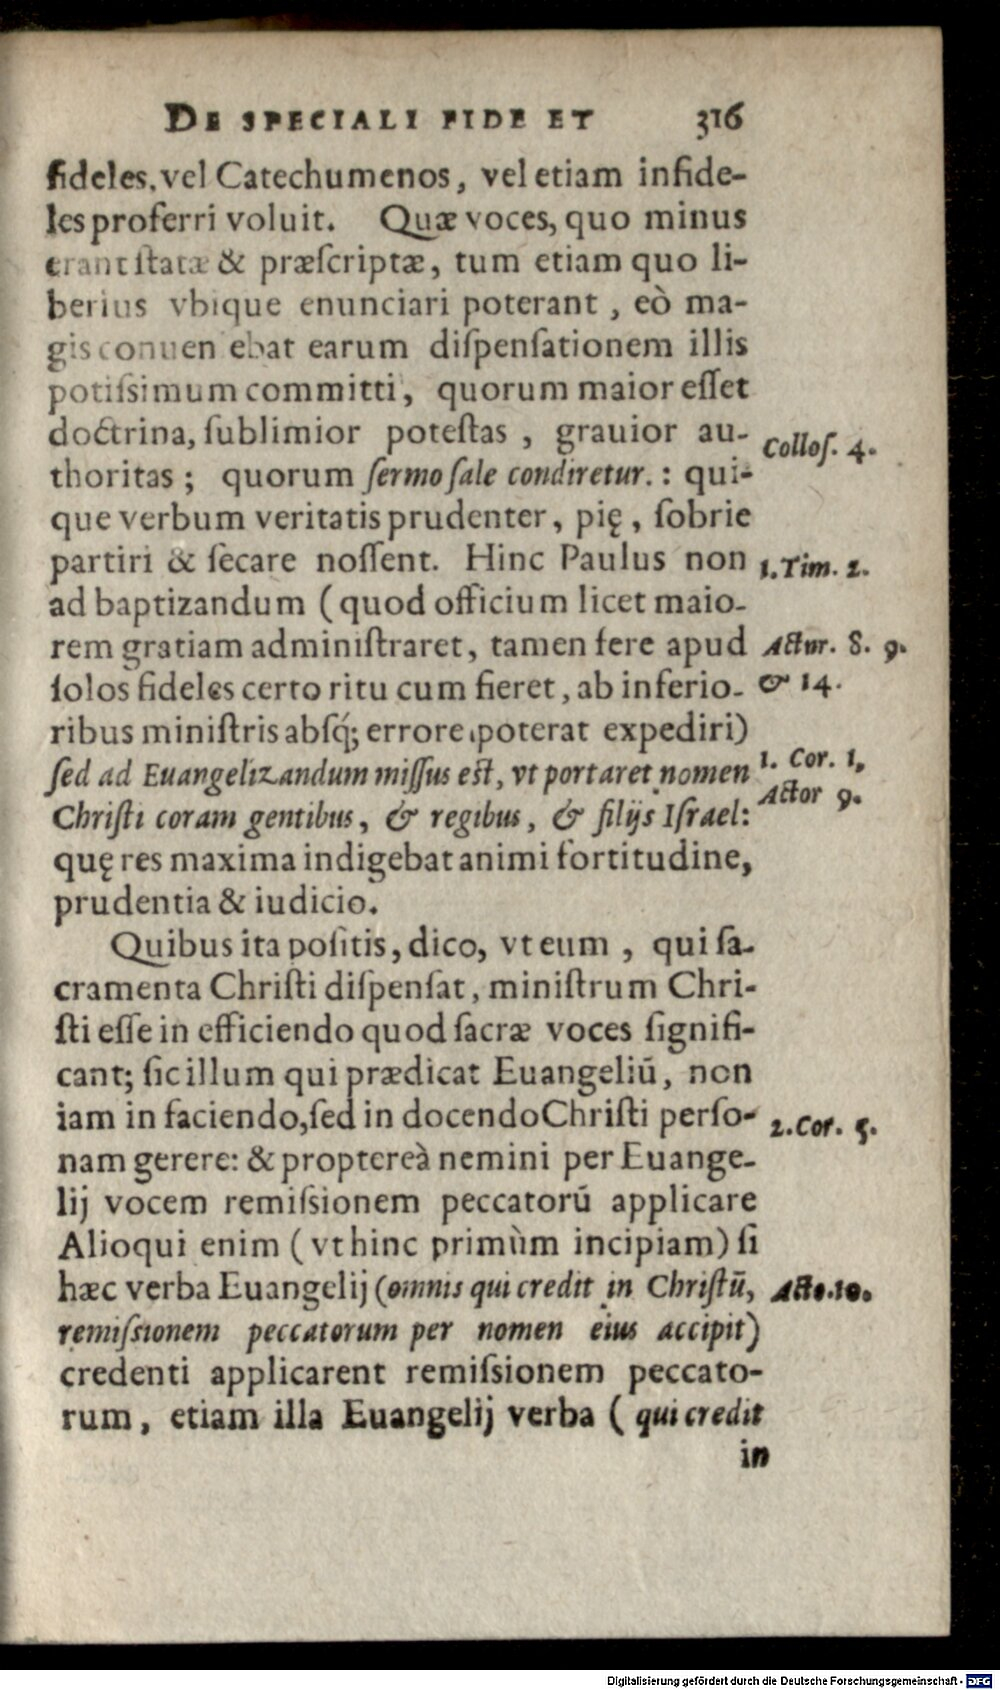 DE SPECIALI FIDE ET 316
fideles, vel Catechumenos, vel etiam infide-
les proferri voluit. Quæ voces, quo minus
erant ſtatæ & præſcriptæ, tum etiam quo li-
berius vbique enunciari poterant, eò ma-
gis conuen ebat earum diſpenſationem illis
potiſsimum committi, quorum maior eſſet
doctrina, ſublimior poteſtas, grauior au-
Colloſ. 4.
thoritas; quorum ſermo ſale condiretur.: qui-
que verbum veritatis prudenter, pię, ſobrie
partiri & ſecare noſſent. Hinc Paulus non
1. Tim. 2.
ad baptizandum (quod officium licet maio-
rem gratiam adminiſtraret, tamen fere apud
Actor. 8. 9.
ſolos fideles certo ritu cum fieret, ab inferio-
& 14.
ribus miniſtris abſq́; errore poterat expediri)
ſed ad Euangelizandum miſſus eſt, vt portaret nomen
1. Cor. 1,
Actor 9.
Chriſti coram gentibus, & regibus, & filijs Iſrael:
quę res maxima indigebat animi fortitudine,
prudentia & iudicio.
Quibus ita poſitis, dico, vt eum, qui ſa-
cramenta Chriſti diſpenſat, miniſtrum Chri-
ſti eſſe in efficiendo quod ſacræ voces ſignifi-
cant; ſic illum qui prædicat Euangeliū, non
iam in faciendo, ſed in docendo Chriſti perſo-
2. Cor. 5.
nam gerere: & proptereà nemini per Euange-
lij vocem remiſsionem peccatorū applicare
Alioqui enim (vt hinc primùm incipiam) ſi
hæc verba Euangelij (omnis qui credit in Chriſtū,
Acto. 10.
remiſsionem peccatorum per nomen eius accipit)
credenti applicarent remiſsionem peccato-
rum, etiam illa Euangelij verba (qui credit
in
Digitalisierung gefördert durch die Deutsche Forschungsgemeinschaft - DFG